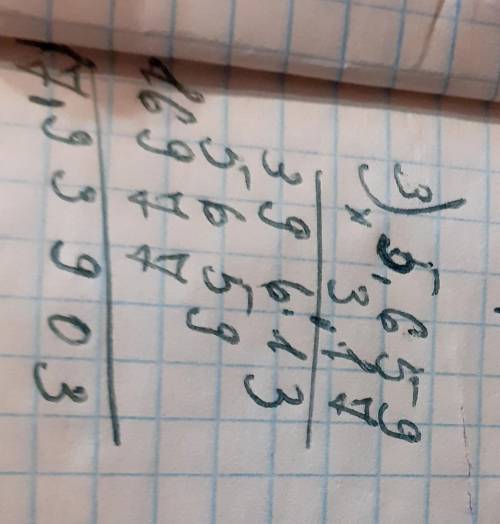 3) × 5,659
3,17
39613
5659
16977
17,93903